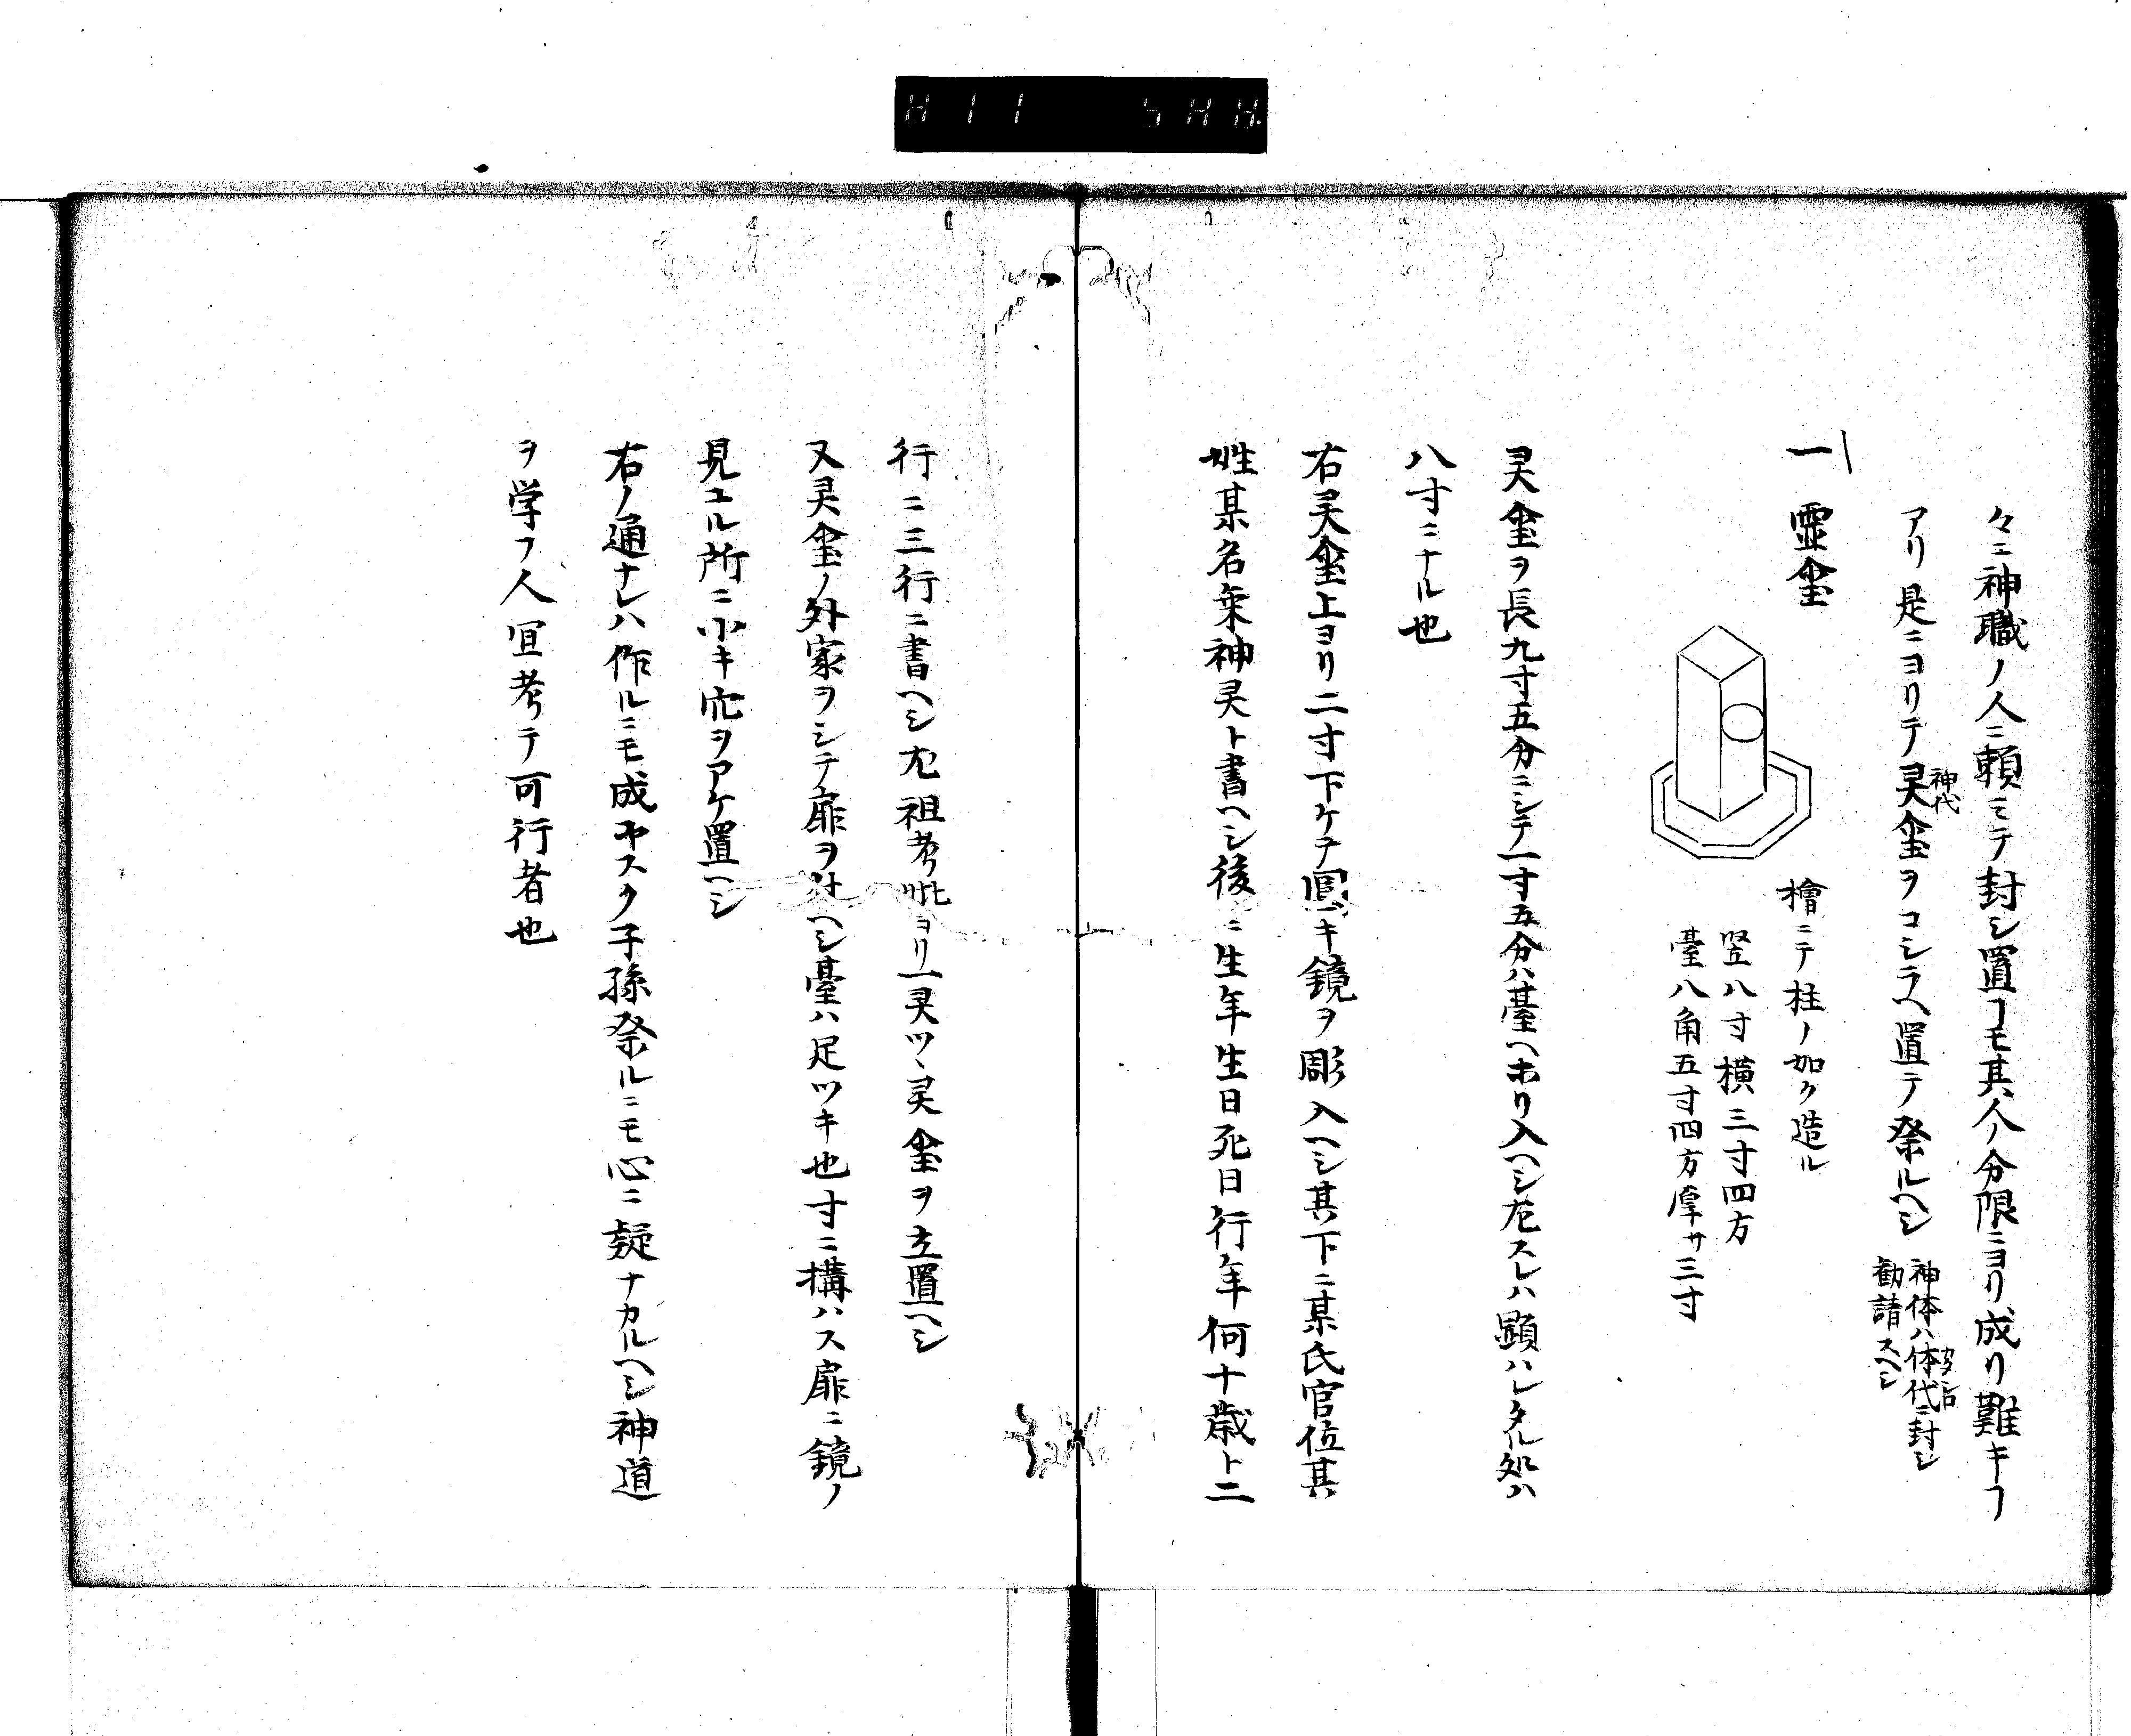 々ニ神職ノ人ニ頼ミテ封シ置ヿモ其人ノ分限ニヨリ成リ難キヿ
アリ是ニヨリテ灵璽ヲコシラヘ置テ祭ルヘシ
神代
神体ハ体代ニ封シ
勧請スヘシ
一 霊璽
檜ニテ柱ノ如ク造ル
竪八寸横三寸四方
臺八角五寸四方厚サ三寸
灵璽ヲ長九寸五分ニシテ一寸五分ハ臺ヘホリ入ヘシ左スレハ顕ハレタル処ハ
八寸ニナル也
右灵璽上ヨリ二寸下ケテ圓キ鏡ヲ彫入ヘシ其下ニ某氏官位其
姓某名某神灵ト書ヘシ後ニ生年生日死日行年何十歳ト二
行ニ三行ニ書ヘシ尤祖考妣ヨリ一灵ツヽ灵璽ヲ立置ヘシ
又灵璽ノ外家ヲシテ扉ヲ付ヘシ臺ハ足ツキ也寸ニ構ハス扉ニ鏡ノ
見エル所ニ小キ穴ヲアケ置ヘシ
右ノ通ナレハ作ルニモ成ヤスク子孫祭ルニモ心ニ疑ナカルヘシ神道
ヲ学フ人宜考テ可行者也